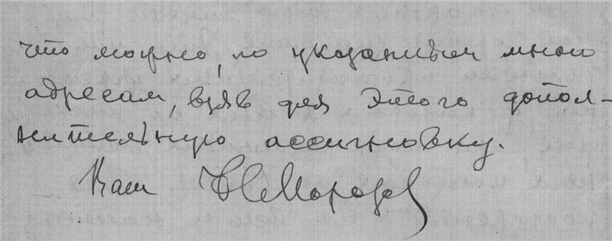 что можно, по указанным мною
адресам, взяв для этого допол-
нительную ассигновку.
Ваш НМорозов